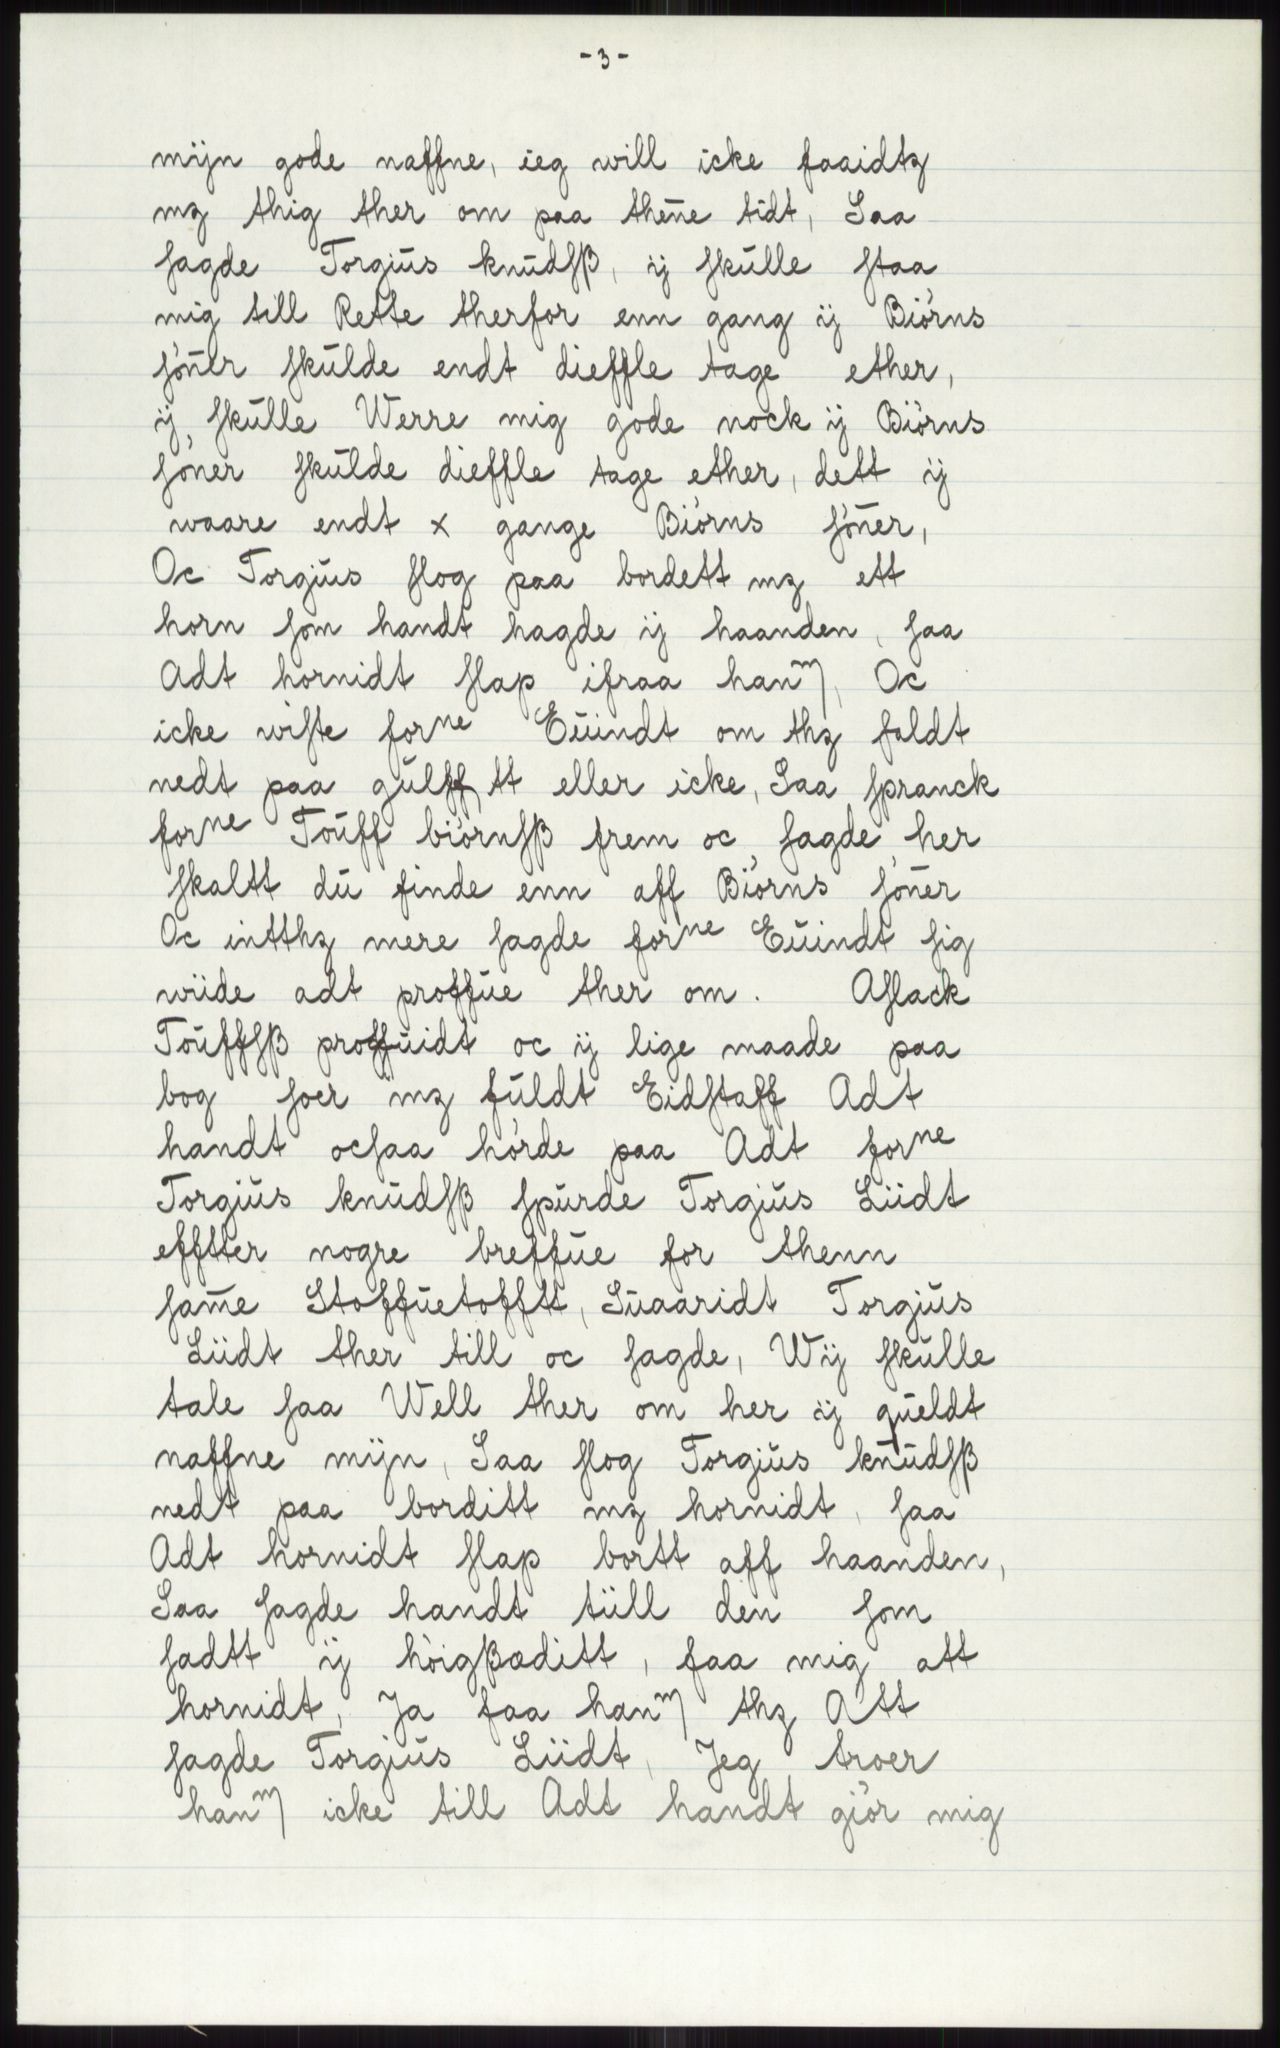 - 3 -
mijn gode naffne, ieg will icke faaidtz
mz thig ther om paa then̄e tidt, Saa
sagde Torgiŭs knŭdsß, ij skŭlle staa
mig till Rette therfor enn gang ij Biórns
són̄er skŭlde endt dieffle tage ether,
ij skŭlle Werre mig gode nock ij Biórns
sóner skŭlde dieffle tage ether, dett ij
waare endt x gange Biórns són̄er,
Oc Torgiŭs slog paa bordett mz ett
horn som handt hagde ij haanden, saa
Adt hornidt slap ifraa hanᵐ, Oc
icke wiste forⁿᵉ Eŭindt om thz faldt
nedt paa gŭlfftt eller icke, Saa spranck
forⁿᵉ Toŭff biórnsß frem oc sagde her
skaltt dŭ finde enn aff Biórns són̄er
Oc intthz mere sagde forⁿᵉ Eŭindt sig
wiide adt proffŭe ther om. Aslack
Toŭffsß proffŭidt oc ij lige maade paa
bog soer mz fŭldt Eidstaff Adt
handt ocsaa hórde paa Adt forⁿᵉ
Torgiŭs knŭdsß spŭrde Torgiŭs Liidt
efftter nogre breffŭe for thenn
sam̄e Stoffŭetofftt, Sŭaaridt Torgiŭs
Liidt ther till oc sagde, Wij skŭlle
tale saa Well ther om her ij qŭeldt
naffne mijn, Saa slog Torgiŭs knŭdsß
nedt paa borditt mz hornidt, saa
Adt hornidt slap bortt aff haanden,
Saa sagde handt tiill den som
sadtt ij hóigßæditt, faa mig att
hornidt, Ja faa hanᵐ thz Att
sagde Torgiŭs Liidt, Jeg troer
hanᵐ icke till Adt handt giór mig